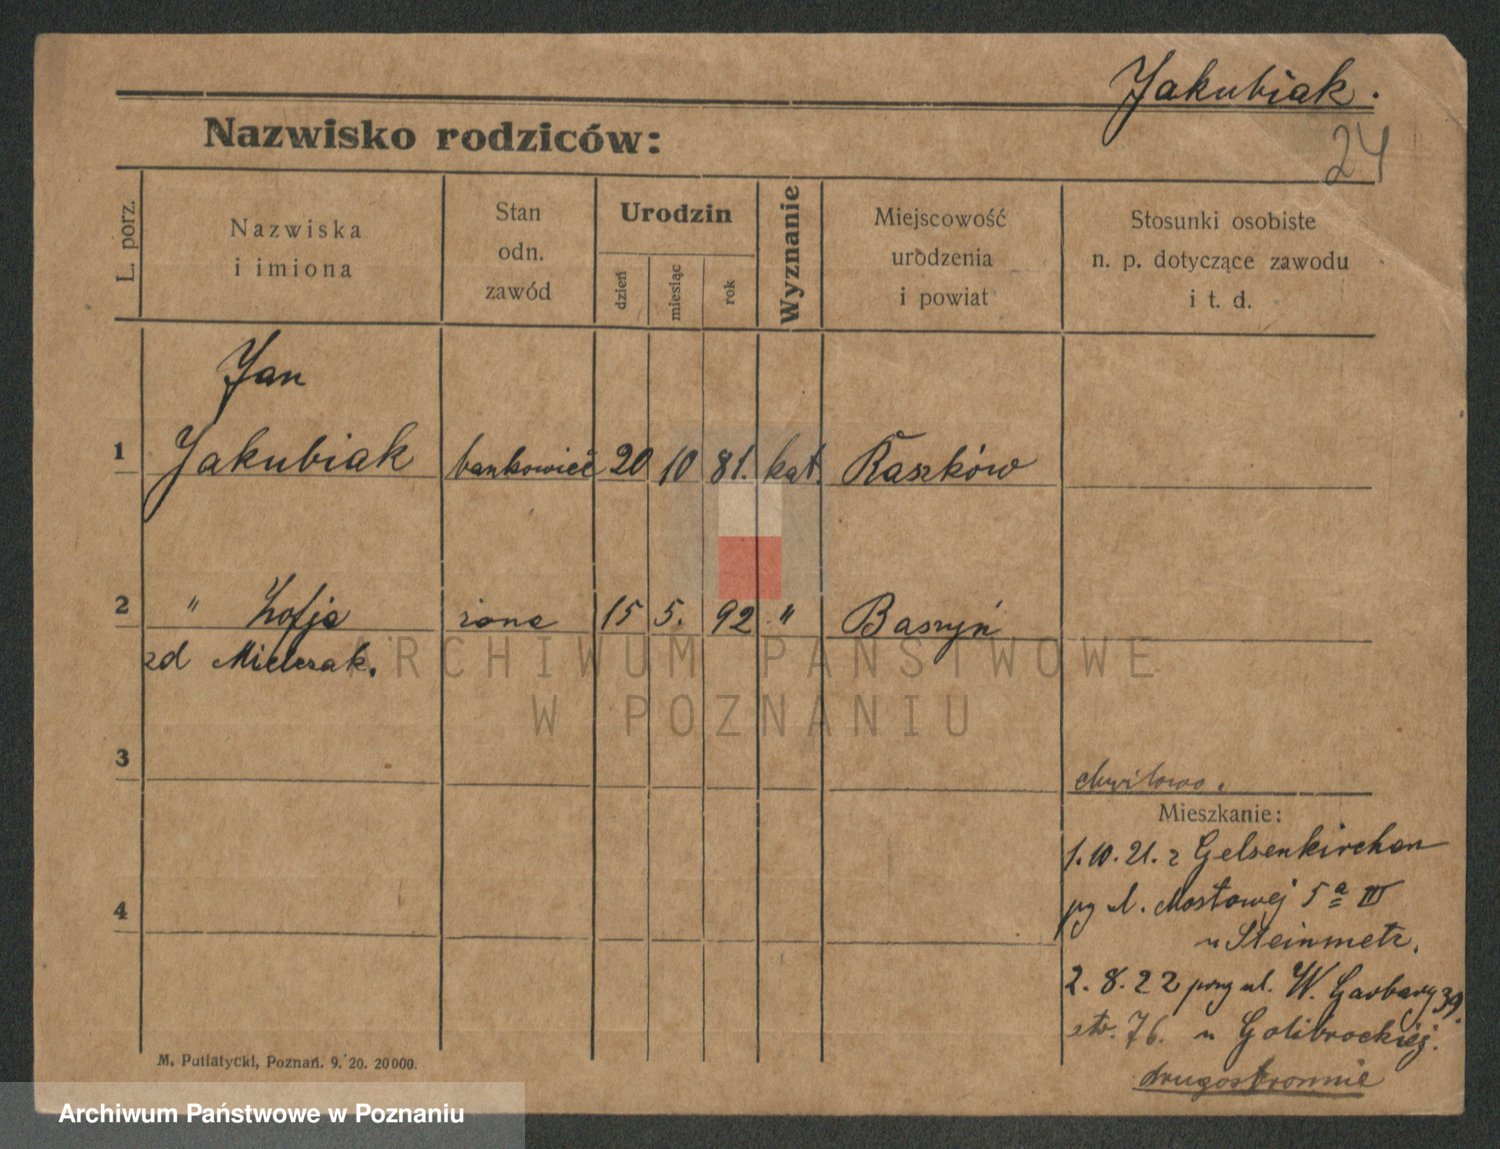 Jakubiak.
24
Nazwisko rodziców:
L. porz.
Nazwiska
i imiona
Stan
odn.
zawód
Urodzin
dzień
miesiąc
rok
Wyznanie
Miejscowość
urodzenia
i powiat
Stosunki osobiste
n. p. dotyczące zawodu
i t. d.
Jan
1 Jakubiak bankowiec 20 10 81. kat. Raszków
2 " Zofja żona 15 5. 92 " Baszyń
zd Mielczak.
ARCHIWUM PAŃSTWOWE
W POZNANIU
3
chwilowo.
Mieszkanie:
1.10.21. z Gelsenkirchen
4
pz ul. Mostowej 5a III
u Steinmetz.
2.8.22 przy ul. W. Garbary 39.
str. 76. u Golibrockiej.
drugostronnie
M. Putiatycki, Poznań. 9. 20. 20000.
Archiwum Państwowe w Poznaniu